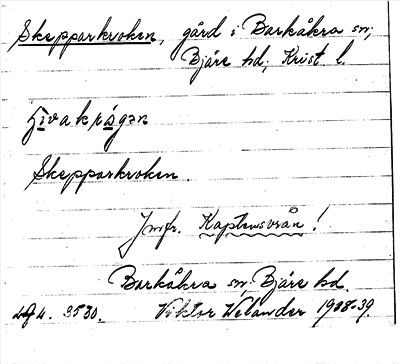 Skepparkroken, gård i Barkåkra sn,
Bjäre hd, Krist. l.
Skepparkroken.
Jmfr. Kaptensvrån!
Barkåkra sn, Bjäre hd.
4. 3530. Viktor Welander 1908-39.